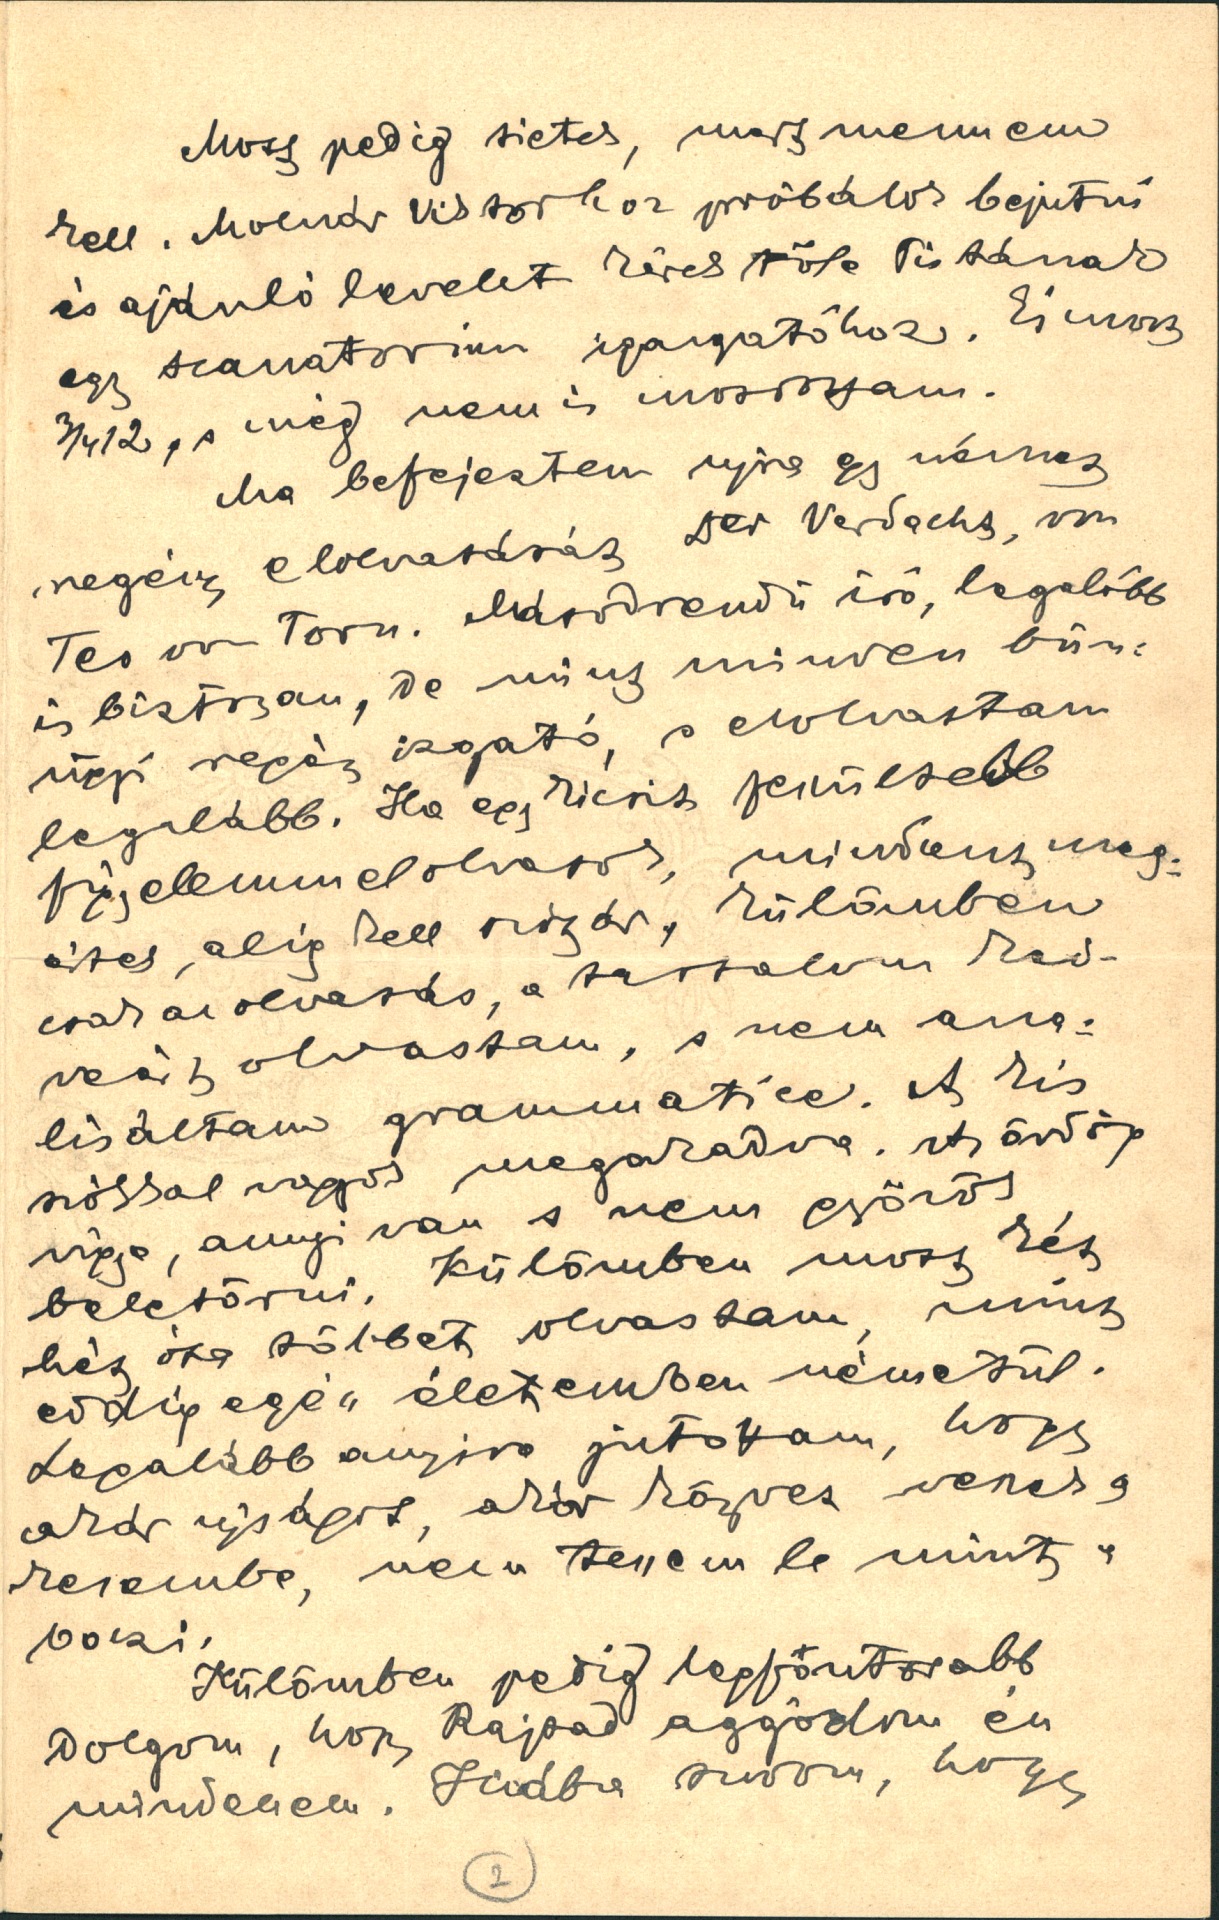 Most pedig sietek, mert mennem
kell. Molnár Viktorhoz próbálok bejutni
és ajánló levelet kérek tőle Pistának
egy szanatorium igazgatóhoz. És most
3/4 12, s még nem is mosdottam.
Ma befejeztem ujra egy német
regény elolvasását Der Verdacht, von
Teo von Torn. Másodrendű író, legalább
is bizton, de mint minden bün-
ügyi regény izgató, s elolvastam
legalább. Ha egy kicsit feszültebb
figyelemmel olvasok, mindent meg-
értek, alig kell szótár, külömben
csak az olvasás, a tartalom ked-
veért olvastam, s nem ana-
lisáltam grammatice. A kis
szókkal vagyok megakadva. Az ördög
vigye, annyi van s nem győzök
beletörni. Külömben most két
hét óta többet olvastam, mint
eddig egész életemben németül.
Legalább annyira jutottam, hogy
akár ujságot, akár könyvet veszek a
kezembe, nem teszem le mint a
boczi.
Külömben pedig legfőntosabb
dolgom, hogy Rajtad aggódom én
mindenem. Hiába tudom, hogy
2